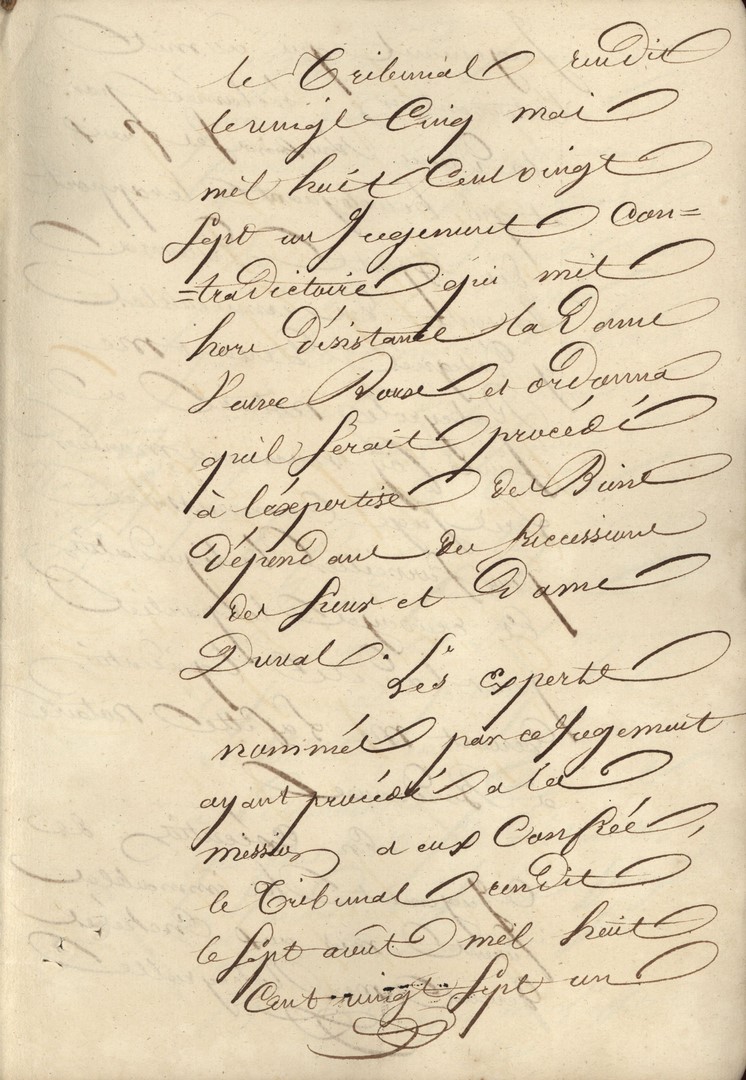 le Tribunal rendit
le vingt Cinq mai
mil huit Cent vingt
sept un Jugement Con=
=tradictoire qui mit
hors d'esistance la Dame
Veuve et ordonna
qu'il serait procédé
à l'éxpertise des Biens
dépendans des successions
des sieur et Dame
Duval. Les experts
nommés par ce Jugement
ayant procédé a la
mission a eux Confiée,
le Tribunal rendit
le sept août mil huit
Cent vingt sept un